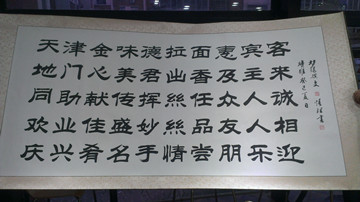 天地同欢庆
津门助业兴
金心献佳肴
味美传盛名
德君挥妙手
拉出絲絲情
面香任品尝
惠及众友朋
宾主人人乐
客来诚相迎
癸巳夏日
书